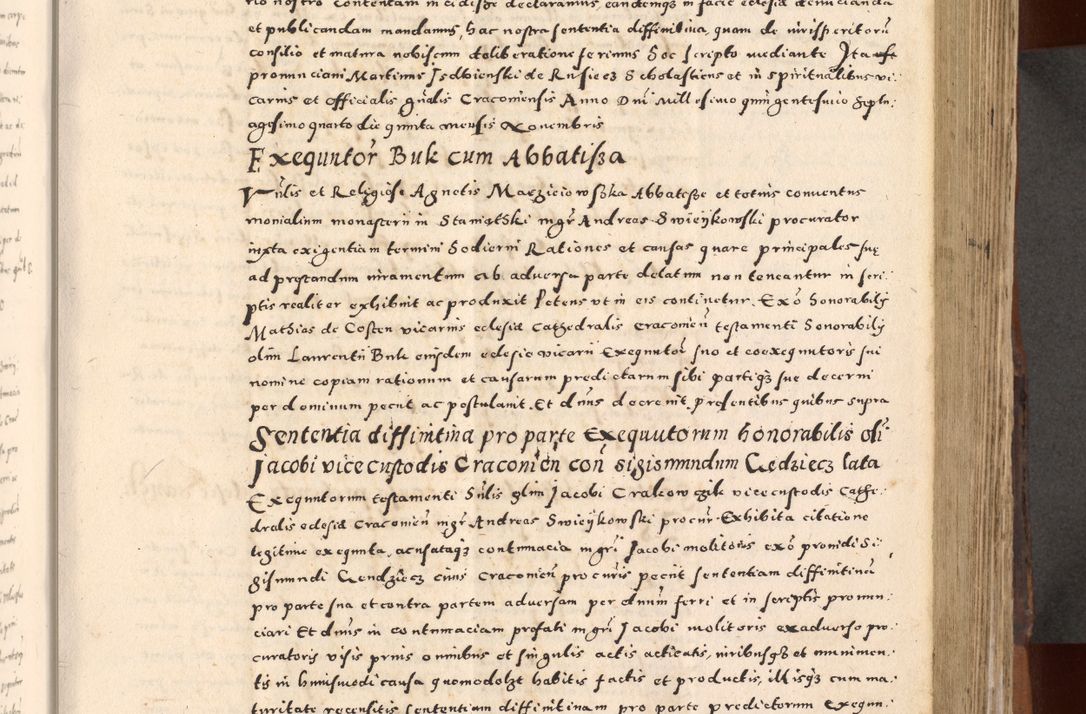 rio nostro contentam incidisse declaramus, eandemqz in facie eclesia denuncianda
et publicandam mandamus, hac nostra sententia diffinitiva, quam de iurisperitorũ
consilio et matura nobiscum deliberatione ferimus Hoc scripto mediante Ita est
pronunciavi Martinus Isdbienski de Rusiecz Scholasticus et in spiritualibus vi:
carius et officialis gñalis Cracoviensis Anno Dni Millesimo quingentesimo septu:
agesimo quarto die quinta mensis Novembris
Exequutor Buk cum Abbatissa
Vñlis et Religiose Agnetis Maczieiowszka Abbatisse et totius conventus
monialium monasterii in Staniątski mgr Andreas Swieykowski procurator
iuxta exigentiam termini hodierni Rationes et causas quare principales suę
ad pręstandum iuramentum ab adversa parte delatum non teneantur in scri:
ptis realiter exhibuit ac produxit Petens vt in eis continetur. Exõ honorabilis
Mathias de Costen vicarius eclesia Cathedralis Cracovień testamenti honorabilis
olim Laurentii Buk eiusdem eclesie vicarii Exequutor suo et coexequutoris sui
nomine copiam rationum et causarum predictarum sibi partiqz sue decerni
per dominum petiit ac postulavit. Et dnus decrevit. presentibus quibus supra
Sententia diffinitiva pro parte Exequutorum honorabilis oli
Jacobi vicecustodis Cracovień coñ sigismundum Gedziecz lata
Exequutorum testamenti hñlis olim Jacobi Crakowczik vicecustodis Cathe:
dralis eclesia Cracovień mgr Andreas Swieykowski procur. Exhibita citatione
legitime exequuta, acusataqz contumacia mgri Jacobi molitoris exõ providi Si:
gismundi Gendziecz civis Cracovień procuris petiit sententiam diffinitivã
pro parte sua et contra partem adversam per dnum ferri et in scriptis pronun:
ciari Et dnus in contumaciam prefati mgri Jacobi molitoris ex adverso pro:
curatoris visis prius omnibus et singulis actis acticatis, iuribusqz et munimen:
tis in huiusmodi causa quomodolzt habitis factis et productis, illisqz cum ma:
turitate recensitis sententiam diffinitivam pro parte predictorum Exequu: